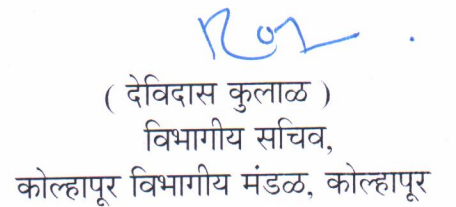 ( देविदास कुलाळ )
विभागीय सचिव,
कोल्हापूर विभागीय मंडळ, कोल्हापूर